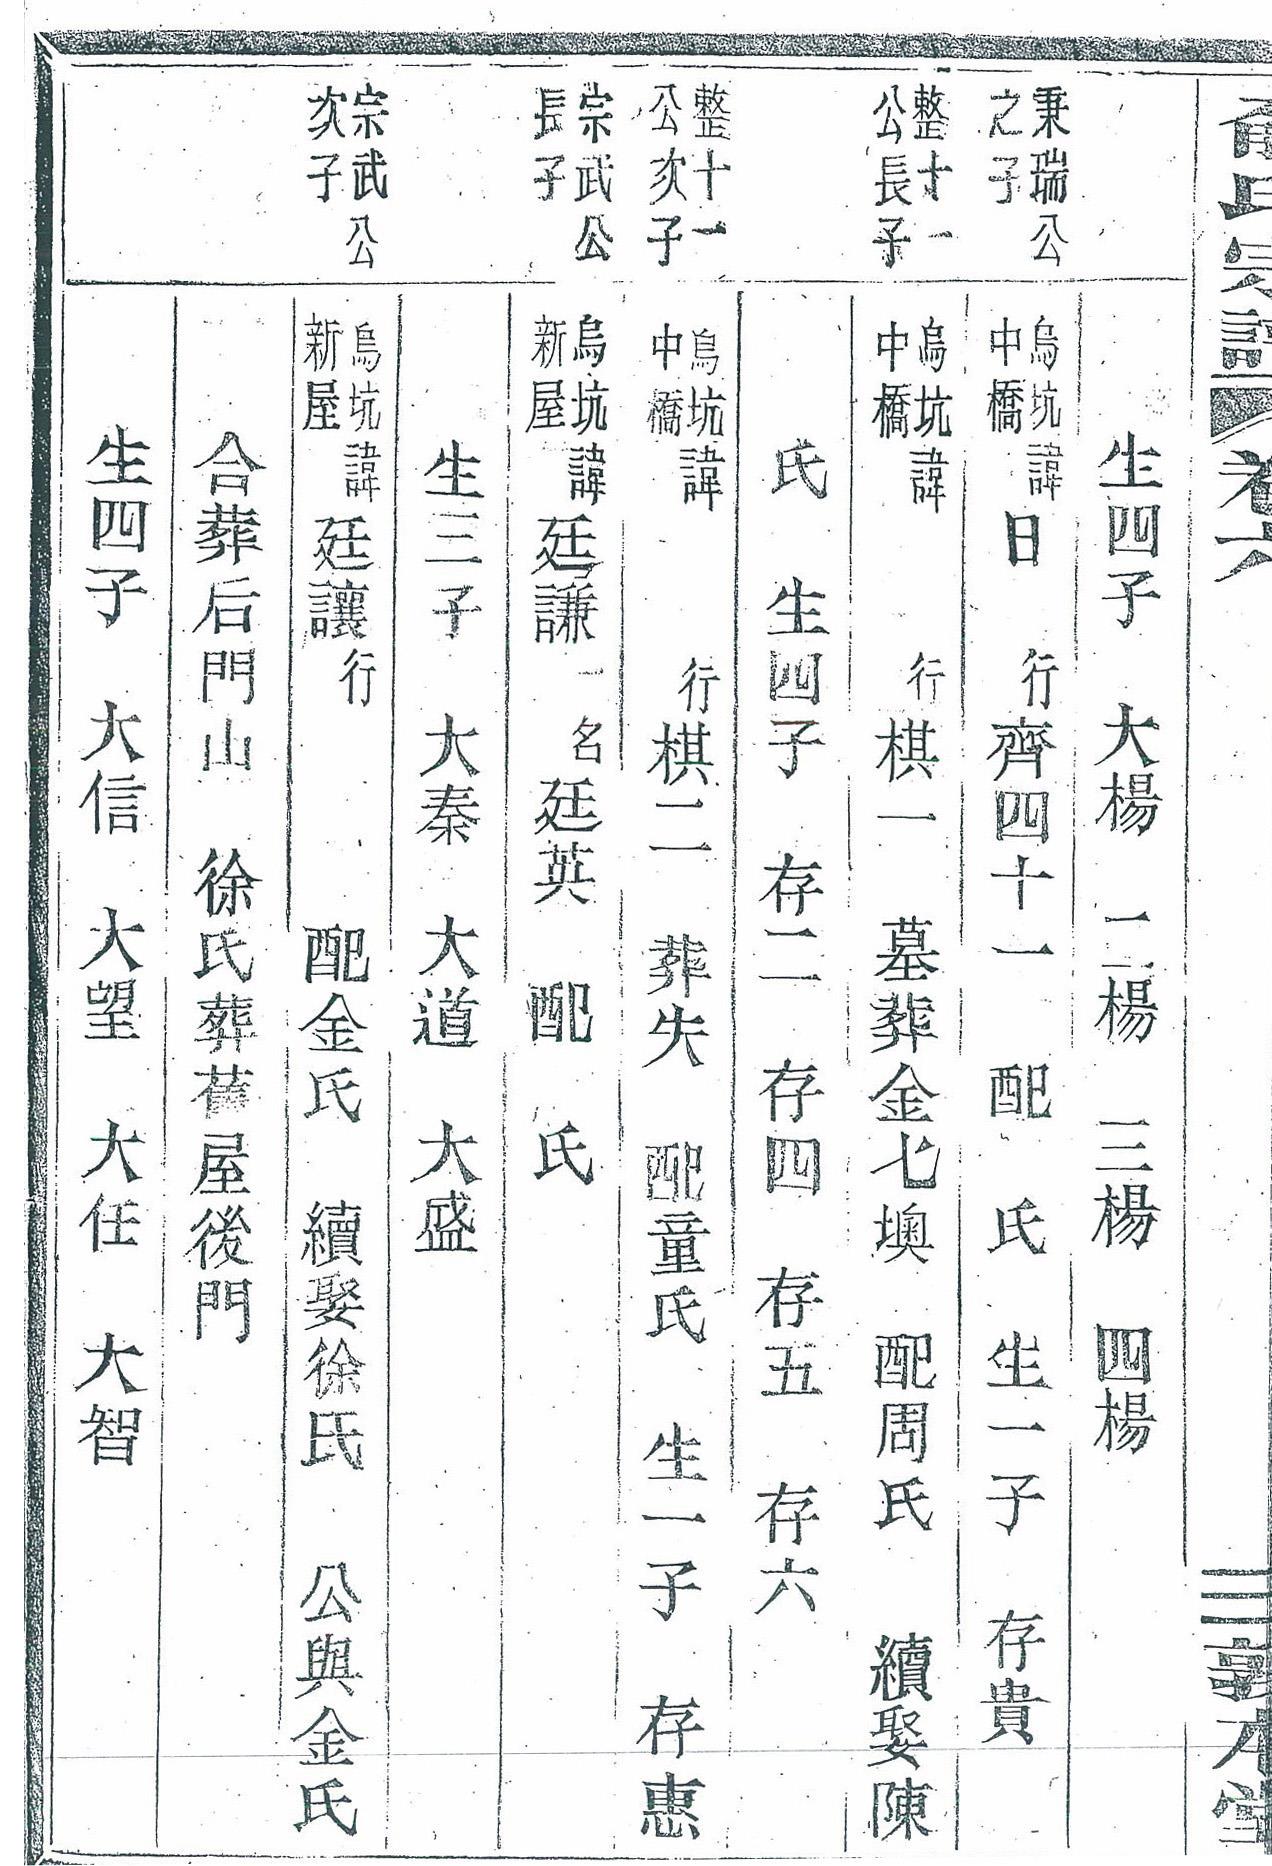 俞氏宗譜 卷六 三 敦本堂
生四子 大楊 二楊 三楊 四楊
秉瑞公之子
烏坑中橋 諱日 行齊四十一 配 氏 生一子 存貴
整十一公長子
烏坑中橋 諱 行棋一 墓葬金七墺 配周氏 續娶陳
氏 生四子 存二 存四 存五 存六
整十一公次子
烏坑中橋 諱 行棋二 葬失 配童氏 生一子 存惠
宗武公長子
烏坑新屋 諱廷謙 一名廷英 配 氏
生三子 大秦 大道 大盛
宗武公次子
烏坑新屋 諱廷讓 行 配金氏 續娶徐氏 公與金氏
合葬后門山 徐氏葬舊屋後門
生四子 大信 大望 大任 大智